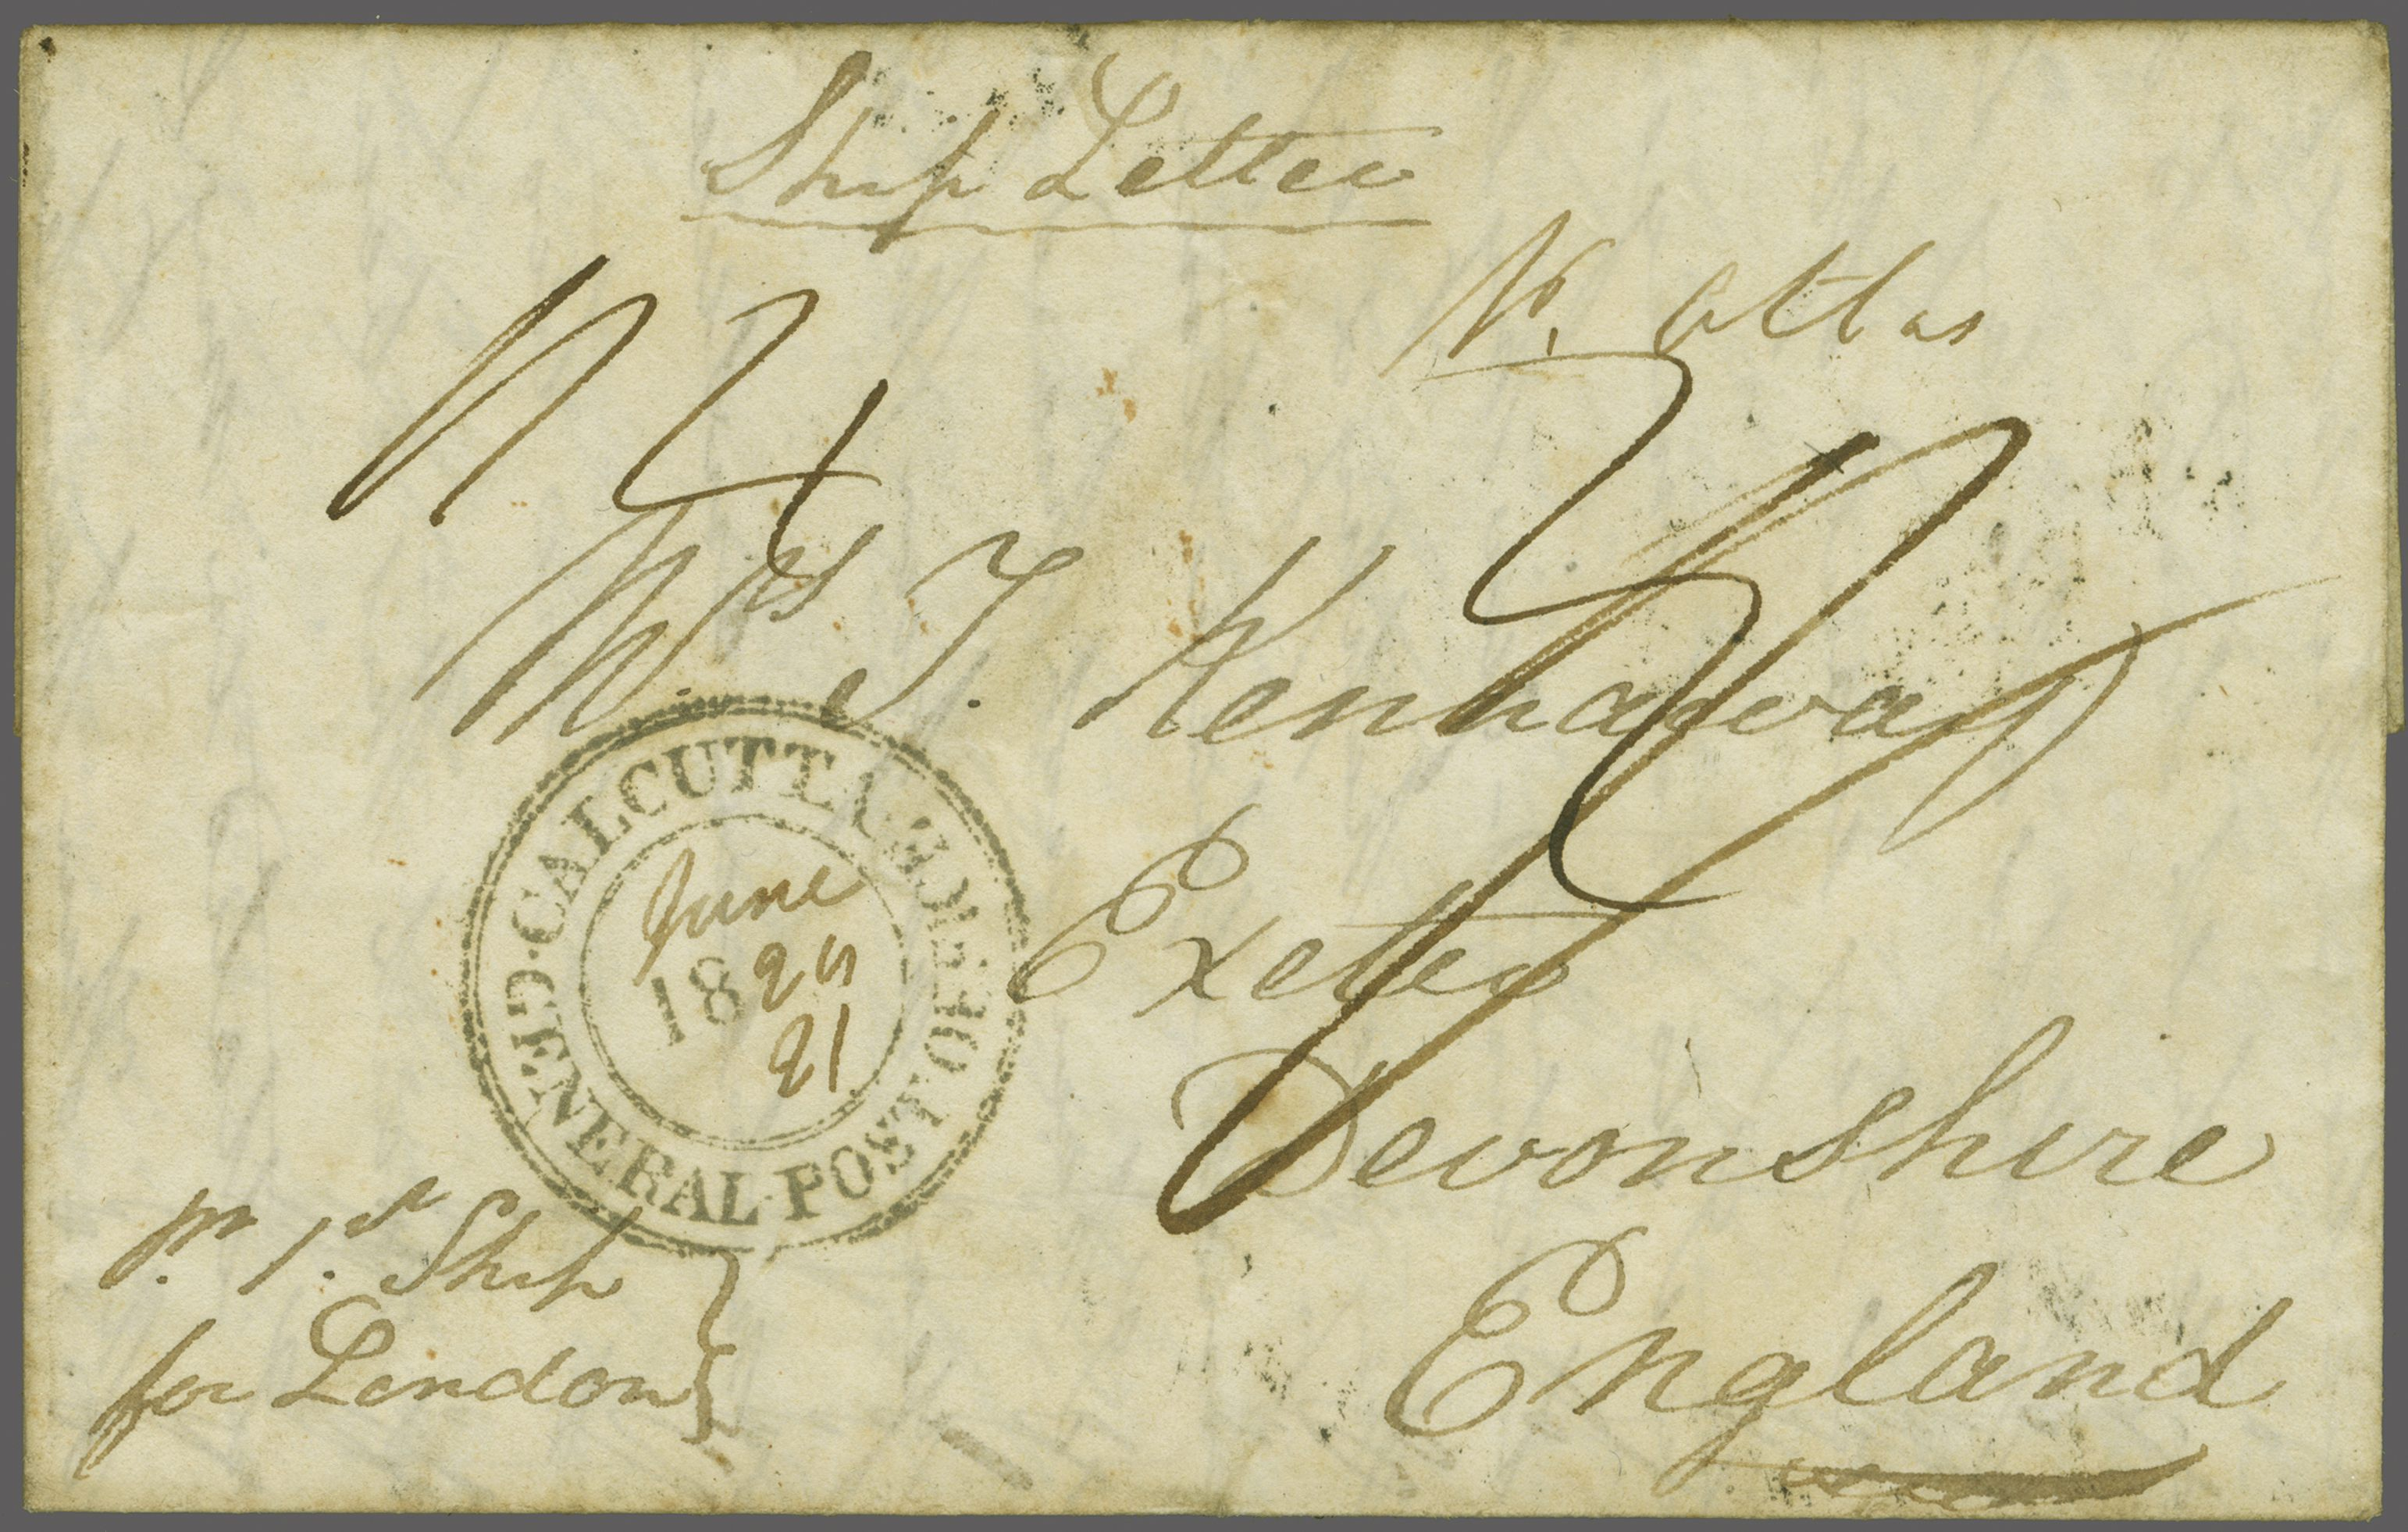 Ship Letter
Atlas
Mrs T. Kennaway
Exeter
Devonshire
England
CALCUTTA GENERAL POST OFFICE
June
18 25
21
pr. 1st Ship
for London